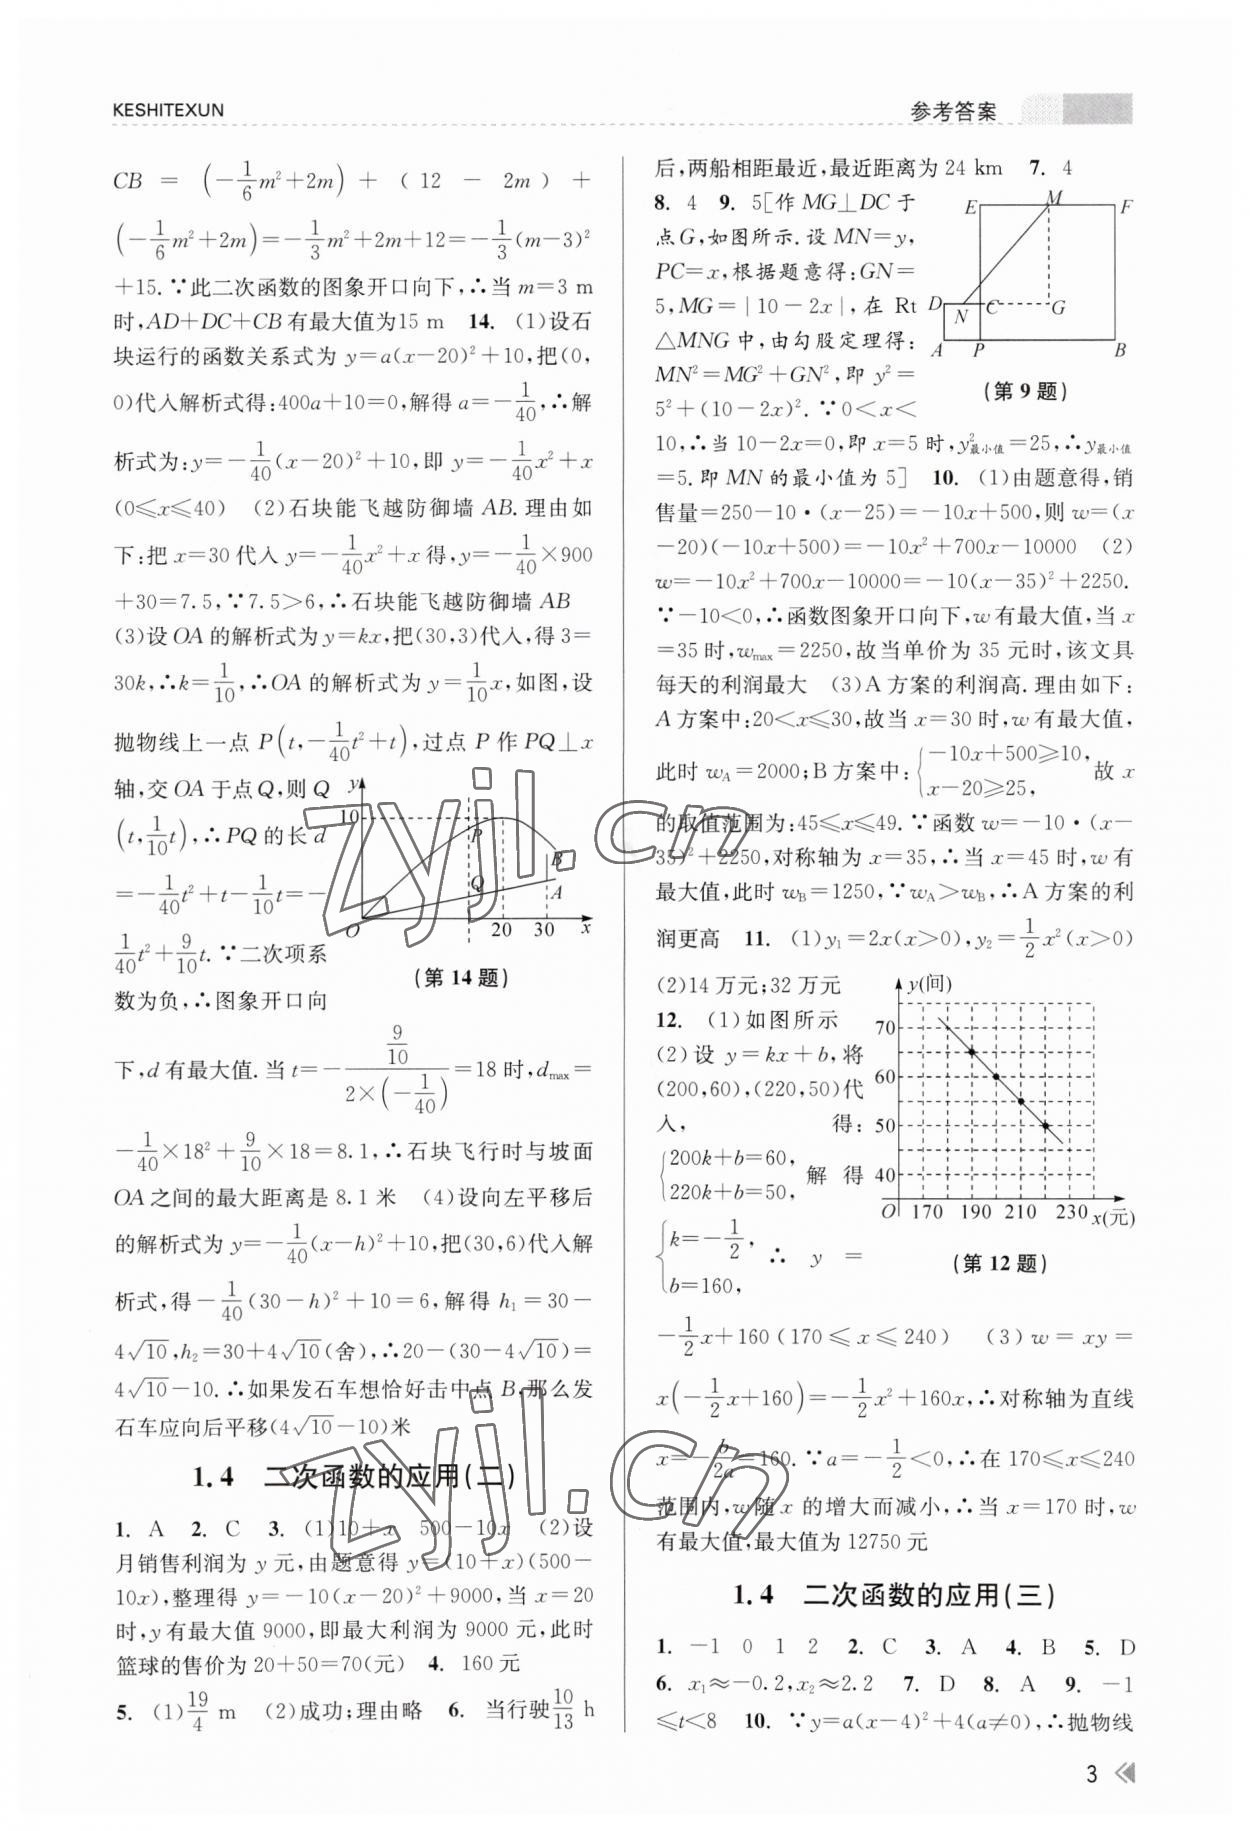 KESHITEXUN
参考答案
CB = (-1/6m²+2m) + (12 - 2m) +
(-1/6m²+2m)=-1/3m²+2m+12=-1/3(m-3)²
+15.∵此二次函数的图象开口向下,∴当m=3 m
时,AD+DC+CB有最大值为15 m 14. (1)设石
块运行的函数关系式为 y=a(x-20)²+10,把(0,
0)代入解析式得:400a+10=0,解得a=-1/40,∴解
析式为:y=-1/40(x-20)²+10,即 y=-1/40x²+x
(0≤x≤40) (2)石块能飞越防御墙 AB.理由如
下:把 x=30代入 y=-1/40x²+x 得,y=-1/40×900
+30=7.5,∵7.5>6,∴石块能飞越防御墙 AB
(3)设OA的解析式为y=kx,把(30,3)代入,得3=
30k,∴k=1/10,∴OA的解析式为y=1/10x,如图,设
抛物线上一点 P(t,-1/40t²+t),过点 P 作PQ⊥x
轴,交OA于点Q,则Q
(t,1/10t),∴PQ的长d
=-1/40t²+t-1/10t=-
1/40t²+9/10t.∵二次项系
数为负,∴图象开口向
y
10
P
B
Q
A
O
20 30 x
(第14题)
下,d有最大值.当t=-(9/10)/(2×(-1/40))=18时,dmax=
-1/40×18²+9/10×18=8.1,∴石块飞行时与坡面
OA之间的最大距离是8.1米 (4)设向左平移后
的解析式为 y=-1/40(x-h)²+10,把(30,6)代入解
析式,得-1/40(30-h)²+10=6,解得 h₁=30-
4√10,h₂=30+4√10(舍),∴20-(30-4√10)=
4√10-10.∴如果发石车想恰好击中点B,那么发
石车应向后平移(4√10-10)米
1.4 二次函数的应用(二)
1. A 2. C 3. (1)10+x 500-10x (2)设
月销售利润为 y 元,由题意得 y=(10+x)(500-
10x),整理得 y=-10(x-20)²+9000,当 x=20
时,y有最大值 9000,即最大利润为 9000 元,此时
篮球的售价为20+50=70(元) 4. 160元
5. (1)19/4 m (2)成功;理由略 6. 当行驶10/13 h
后,两船相距最近,最近距离为24 km 7. 4
8. 4 9. 5[作MG⊥DC于
点G,如图所示.设MN=y,
PC=x,根据题意得:GN=
5,MG=|10-2x|,在 Rt
△MNG中,由勾股定理得:
MN²=MG²+GN²,即 y²=
5²+(10-2x)².∵0<x<
E M F
D N C G
A P B
(第9题)
10,∴当10-2x=0,即x=5时,y²最小值=25,∴y最小值
=5.即MN的最小值为5] 10. (1)由题意得,销
售量=250-10·(x-25)=-10x+500,则w=(x
-20)(-10x+500)=-10x²+700x-10000 (2)
w=-10x²+700x-10000=-10(x-35)²+2250.
∵-10<0,∴函数图象开口向下,w有最大值,当x
=35时,wmax=2250,故当单价为35元时,该文具
每天的利润最大 (3)A方案的利润高.理由如下:
A方案中:20<x≤30,故当x=30时,w有最大值,
此时wA=2000;B方案中:{-10x+500≥10, x-20≥25, 故 x
的取值范围为:45≤x≤49.∵函数w=-10·(x-
35)²+2250,对称轴为x=35,∴当x=45时,w有
最大值,此时wB=1250,∵wA>wB,∴A方案的利
润更高 11. (1)y₁=2x(x>0),y₂=1/2x²(x>0)
(2)14万元;32万元
12. (1)如图所示
(2)设 y=kx+b,将
(200,60),(220,50)代
入, 得:
{200k+b=60, 220k+b=50, 解得
{k=-1/2, b=160, ∴ y =
y(间)
70
60
50
40
O 170 190 210 230 x(元)
(第12题)
-1/2x+160(170≤x≤240) (3)w=xy=
x(-1/2x+160)=-1/2x²+160x,∴对称轴为直线
x=-b/2a=160.∵a=-1/2<0,∴在170≤x≤240
范围内,w随x的增大而减小,∴当x=170时,w
有最大值,最大值为12750元
1.4 二次函数的应用(三)
1. -1 0 1 2 2. C 3. A 4. B 5. D
6. x₁≈-0.2,x₂≈2.2 7. D 8. A 9. -1
≤t<8 10. ∵y=a(x-4)²+4(a≠0),∴抛物线
3
zyjl.cn
zyjl.cn